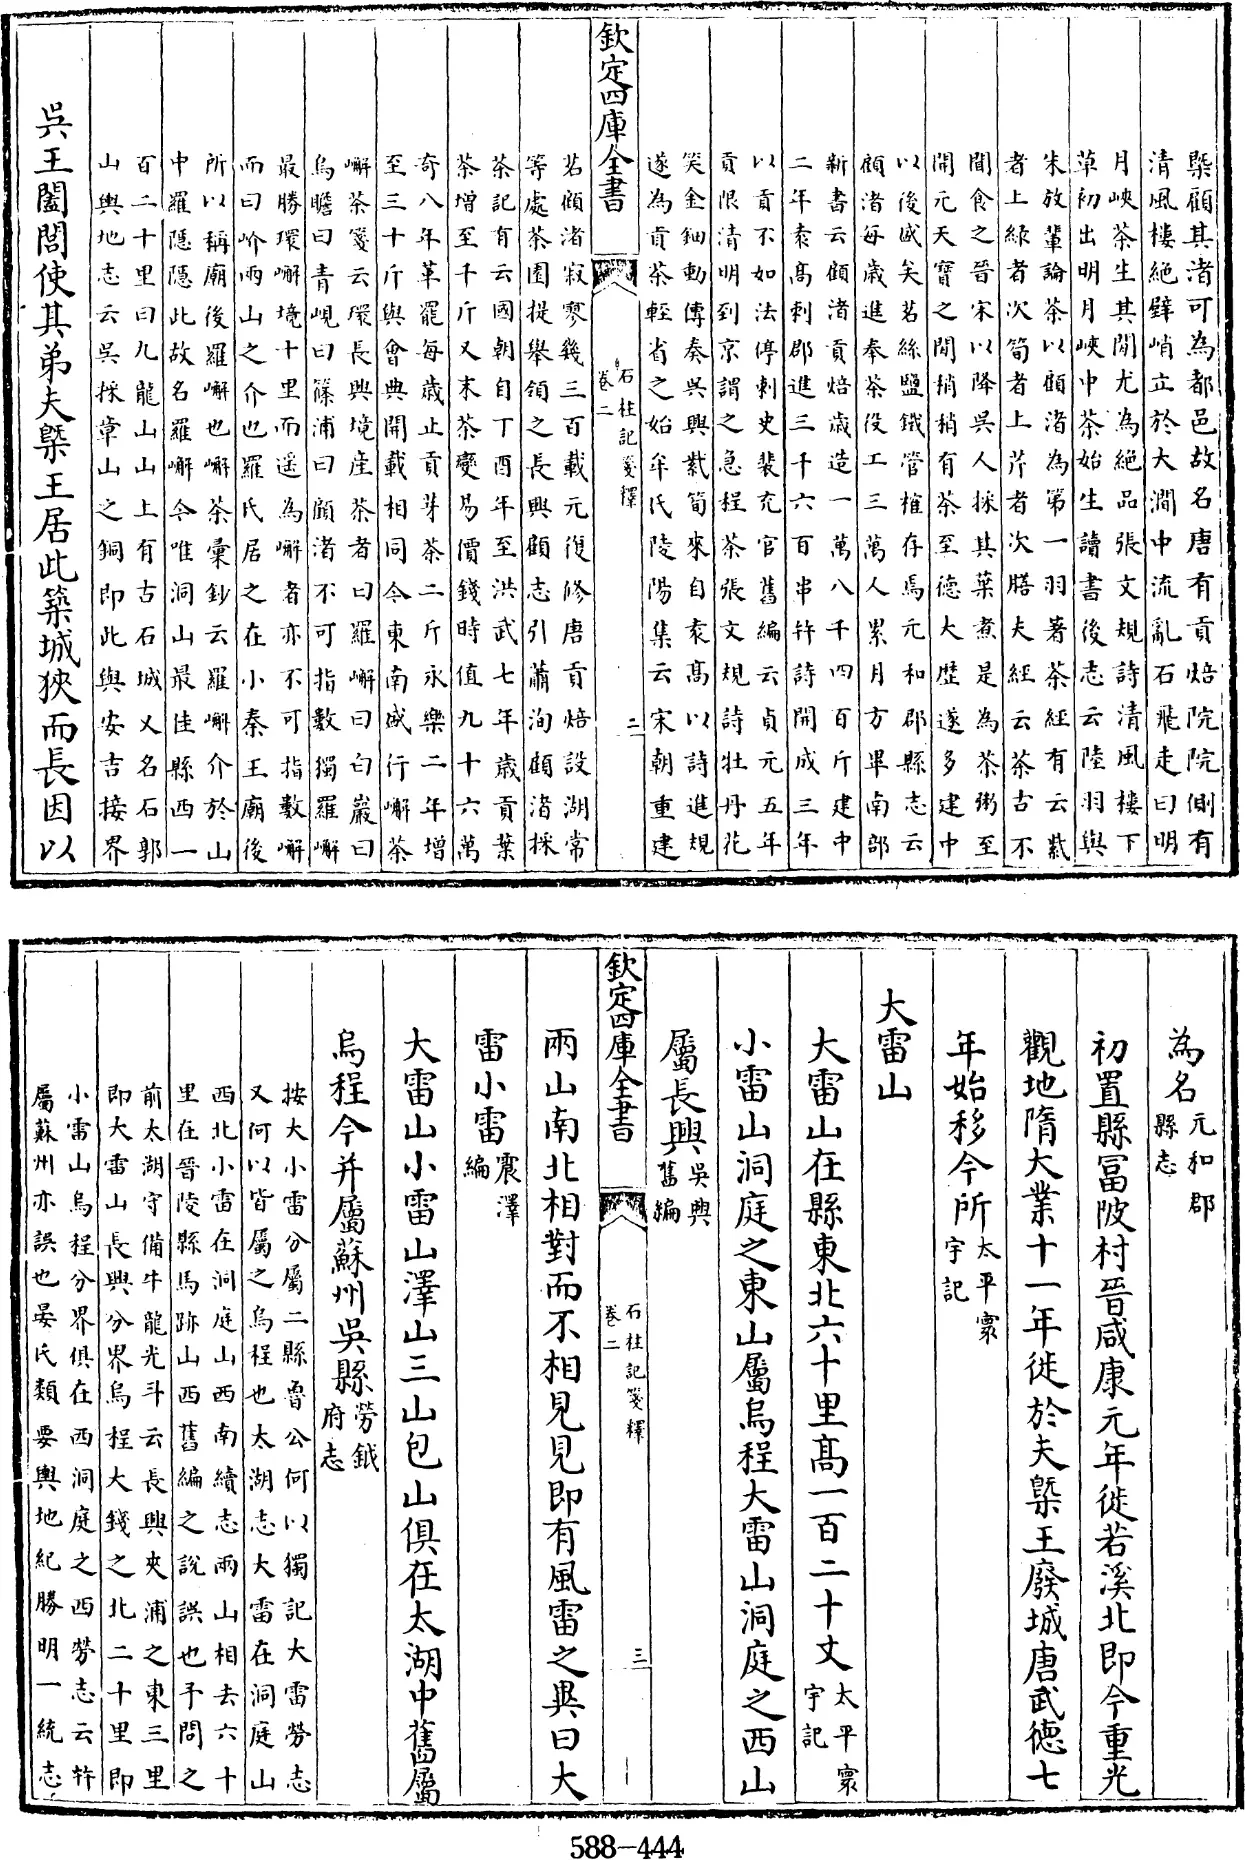 槩顧其渚可為都邑故名唐有貢焙院院側有
清風樓絶壁峭立於大澗中流亂石飛走曰明
月峽茶生其間尤為絶品張文規詩清風樓下
草初出明月峽中茶始生讀書後志云陸羽與
朱放輩論茶以顧渚為第一羽著茶經有云紫
者上綠者次筍者上芹者次膳夫經云茶古不
聞食之晉宋以降吳人採其葉煮是為茶粥至
開元天寶之間稍稍有茶至德大歴遂多建中
以後盛矣茗絲鹽鐵管榷存焉元和郡縣志云
顧渚每歲進奉茶役工三萬人累月方畢南部
新書云顧渚貢焙歲造一萬八千四百斤建中
二年袁髙刺郡進三千六百串并詩開成三年
以貢不如法停刺史裴充官舊編云貞元五年
貢限清明到京謂之急程茶張文規詩牡丹花
笑金鈿動傳奏吳興紫筍來自袁髙以詩進規
遂為貢茶輕省之始牟氏陵陽集云宋朝重建
欽定四庫全書
石柱記箋釋
卷二
二
茗顧渚寂寥幾三百載元復修唐貢焙設湖常
等處茶園提舉領之長興顧志引蕭洵顧渚採
茶記有云國朝自丁酉年至洪武七年歲貢葉
茶增至千斤又末茶變易價錢時值九十六萬
奇八年革罷每歲止貢芽茶二斤永樂二年增
至三十斤與會典開載相同今東南盛行嶰茶
嶰茶箋云環長興境産茶者曰羅嶰曰白巖曰
烏瞻曰青峴曰篠浦曰顧渚不可指數獨羅嶰
最勝環嶰境十里而遥為嶰者亦不可指數嶰
而曰岕兩山之介也羅氏居之在小秦王廟後
所以稱廟後羅嶰也嶰茶彚鈔云羅嶰介於山
中羅隱隱此故名羅嶰今唯洞山最佳縣西一
百二十里曰九龍山山上有古石城又名石郭
山輿地志云吳採章山之銅即此與安吉接界
吳王闔閭使其弟夫槩王居此築城狹而長因以
為名元和郡縣志
初置縣冨陂村晉咸康元年徙若溪北即今重光
觀地隋大業十一年徙於夫槩王廢城唐武德七
年始移今所太平寰宇記
大雷山
大雷山在縣東北六十里髙一百二十丈太平寰宇記
小雷山洞庭之東山屬烏程大雷山洞庭之西山
屬長興吳興舊編
欽定四庫全書
石柱記箋釋
卷二
三
兩山南北相對而不相見見即有風雷之異曰大
雷小雷震澤編
大雷山小雷山澤山三山包山俱在太湖中舊屬
烏程今并屬蘇州吳縣勞鉞府志
按大小雷分屬二縣魯公何以獨記大雷勞志
又何以皆屬之烏程也太湖志大雷在洞庭山
西北小雷在洞庭山西南續志兩山相去六十
里在晉陵縣馬跡山西舊編之說誤也予問之
前太湖守備牛龍光斗云長興夾浦之東三里
即大雷山長興分界烏程大錢之北二十里即
小雷山烏程分界俱在西洞庭之西勞志云并
屬蘇州亦誤也晏氏類要輿地紀勝明一統志
588-444